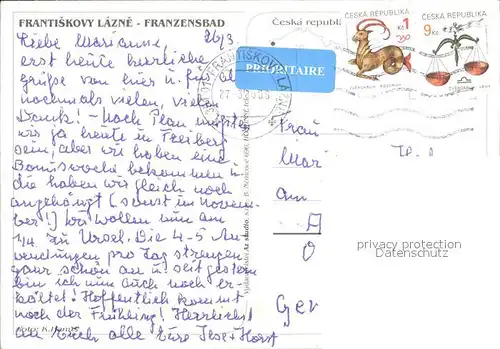 FRANTIŠKOVY LÁZNĚ - FRANZENSBAD
26/3
Liebe Marianne,
erst heute herzliche
Grüße von hier u. für
nochmals vielen, vielen
Dank! - Nach Plan müßten
wir ja heute in Freiberg
sein, aber wir haben eine
Bonuswoche bekommen u.
die haben wir gleich noch
angehängt (sonst im Novem-
ber!) Wir wollen nun am
1/4 zu Ursel. Die 4-5 An-
wendungen pro Tag strengen
ganz schön an u. seit gestern
bin ich nun auch noch er-
kältet! Hoffentlich kommt
noch der Frühling! Herzlichst
an Euch alle Eure Ilse + Horst
Foto: K.
Česká republi
PRIORITAIRE
FRANTIŠKOVY LÁZNĚ
ČESKÁ REPUBLIKA
1
Kč
ČESKÁ REPUBLIKA
9 Kč
Frau
Mar
am
A
O
Ger
privacy protection
Datenschutz